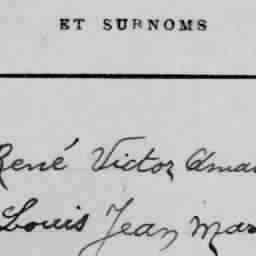 ET SURNOMS
René Victor Amа
Louis Jean Mar